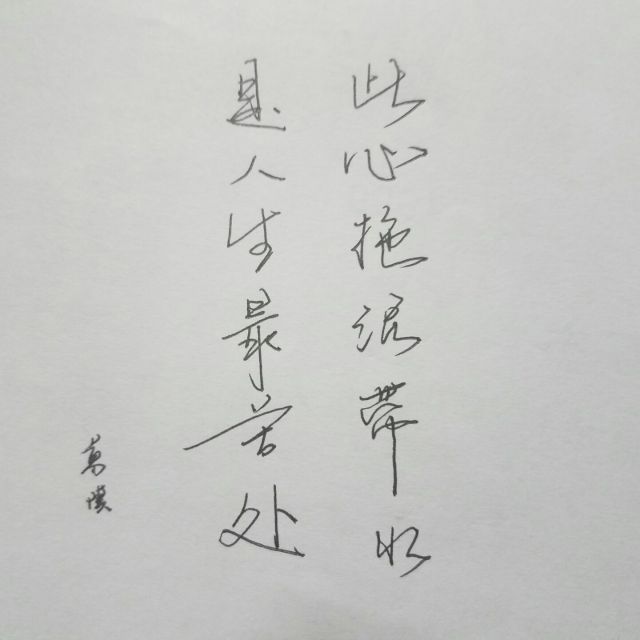 此心拖泥带水
是人生最苦处